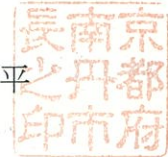 京都府
南丹市
長之印
平